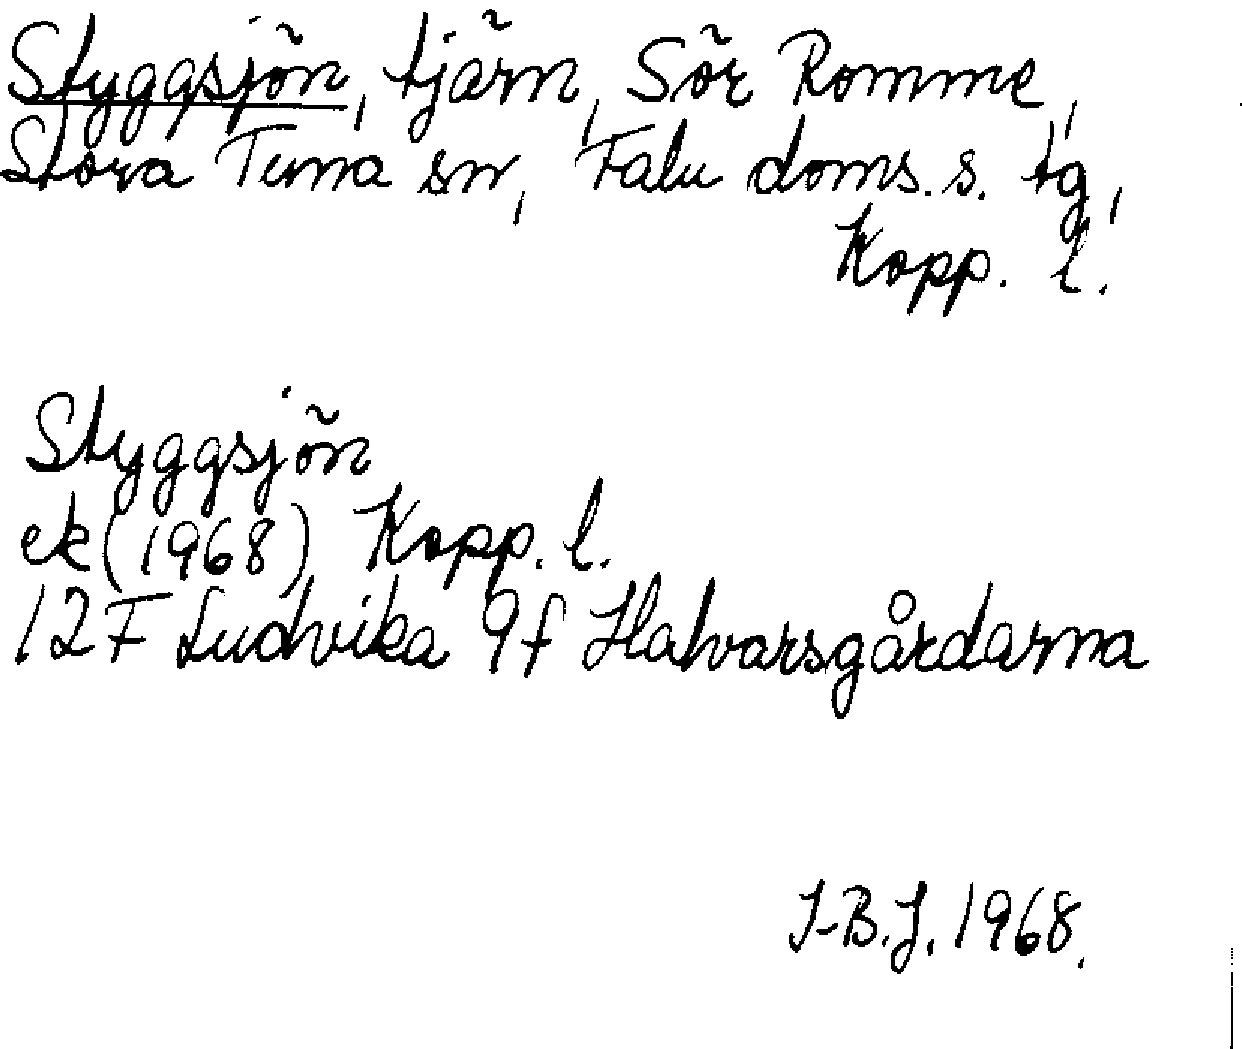 Styggsjön, tjärn, Sör Romme,
Stora Tuna sn, Falu doms. s. tg,
Kopp. l.
Styggsjön
ek (1968) Kopp. l.
12F Ludvika 9f Halvarsgårdarna
I-B.J. 1968.